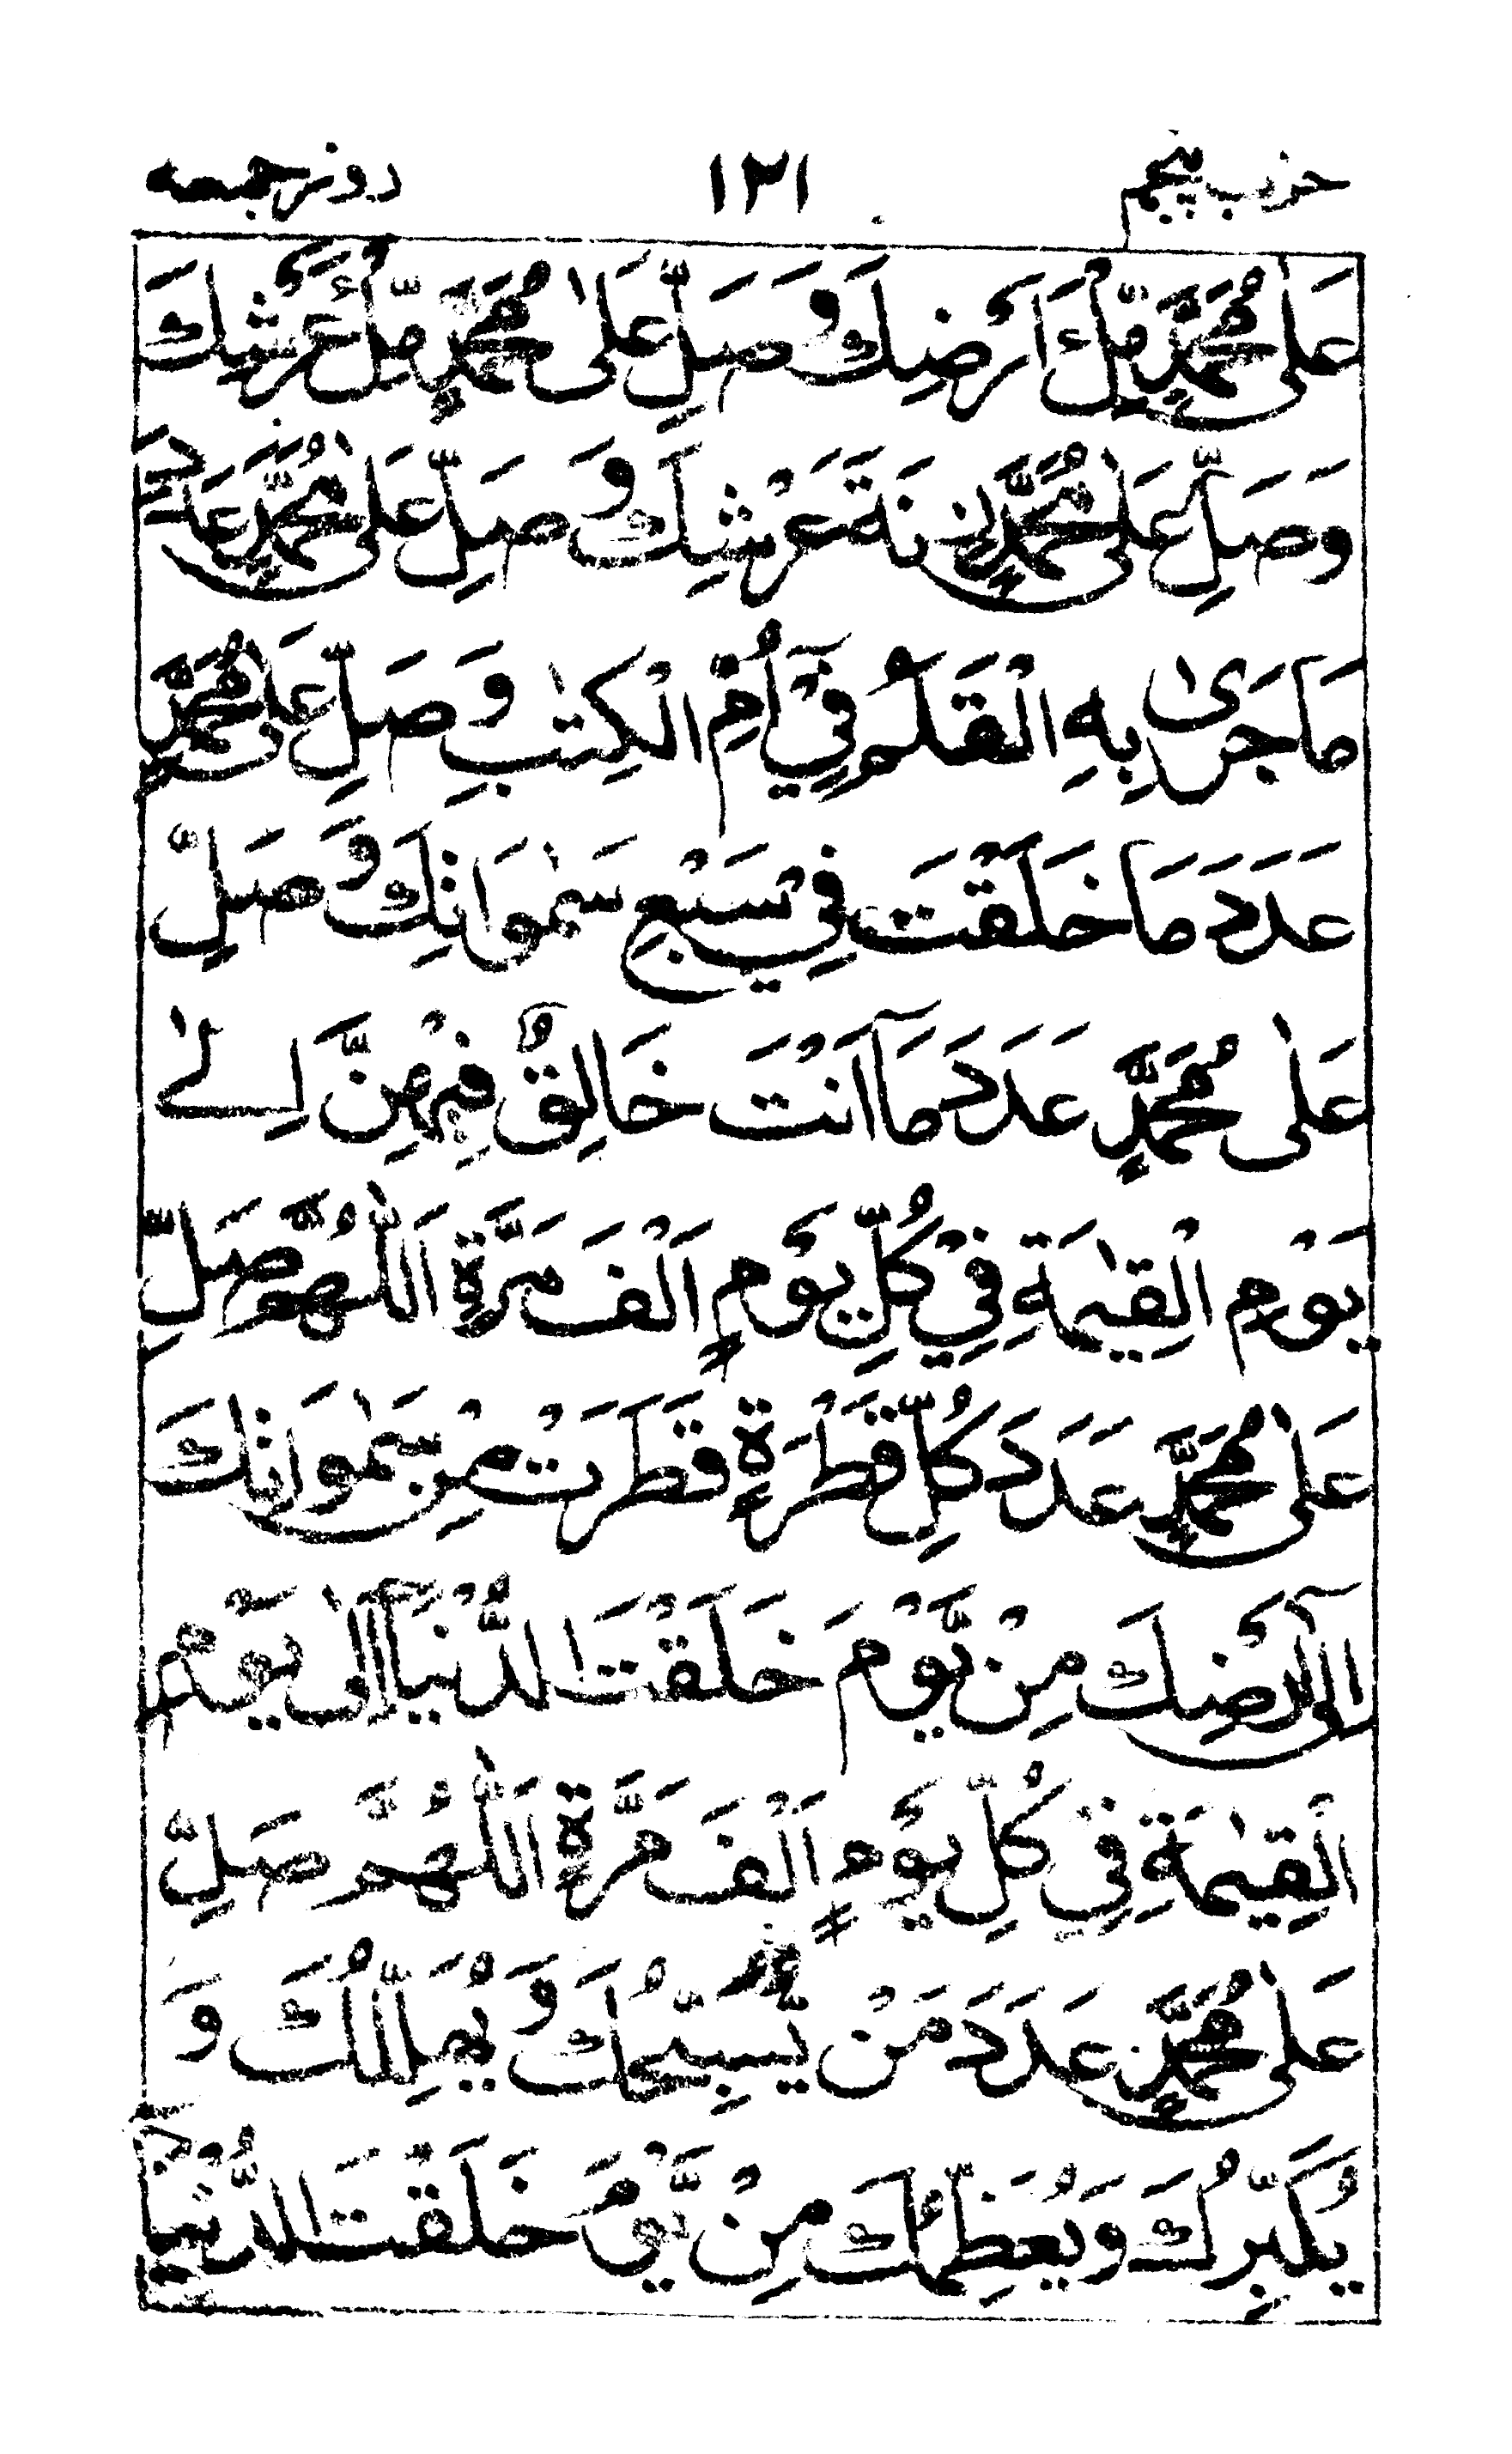 حزب پنجم ١٢١ روز جمعه
عَلٰى مُحَمَّدٍ مِّلْءَ اَرْضِكَ وَصَلِّ عَلٰى مُحَمَّدٍ مِّلْءَ عَرْشِكَ
وَصَلِّ عَلٰى مُحَمَّدٍ زِنَةَ عَرْشِكَ وَصَلِّ عَلٰى مُحَمَّدٍ عَدَدَ
مَا جَرٰى بِهِ الْقَلَمُ فِيْٓ اُمِّ الْكِتٰبِ وَصَلِّ عَلٰى مُحَمَّدٍ
عَدَدَ مَا خَلَقْتَ فِيْ سَبْعِ سَمٰوَاتِكَ وَصَلِّ
عَلٰى مُحَمَّدٍ عَدَدَ مَآ اَنْتَ خَالِقٌ فِيْهِنَّ اِلٰے
يَوْمِ الْقِيٰمَةِ فِيْ كُلِّ يَوْمٍ اَلْفَ مَرَّةٍ اَللّٰهُمَّ صَلِّ
عَلٰى مُحَمَّدٍ عَدَدَ كُلِّ قَطْرَةٍ قَطَرَتْ مِنْ سَمٰوَاتِكَ
اِلٰٓى اَرْضِكَ مِنْ يَّوْمِ خَلَقْتَ الدُّنْيَآ اِلٰى يَوْمِ
الْقِيٰمَةِ فِيْ كُلِّ يَوْمٍ اَلْفَ مَرَّةٍ اَللّٰهُمَّ صَلِّ
عَلٰى مُحَمَّدٍ عَدَدَ مَنْ يُّسَبِّحُكَ وَيُهَلِّلُكَ وَ
يُكَبِّرُكَ وَيُعَظِّمُكَ مِنْ يَّوْمَ خَلَقْتَ الدُّنْيَآ